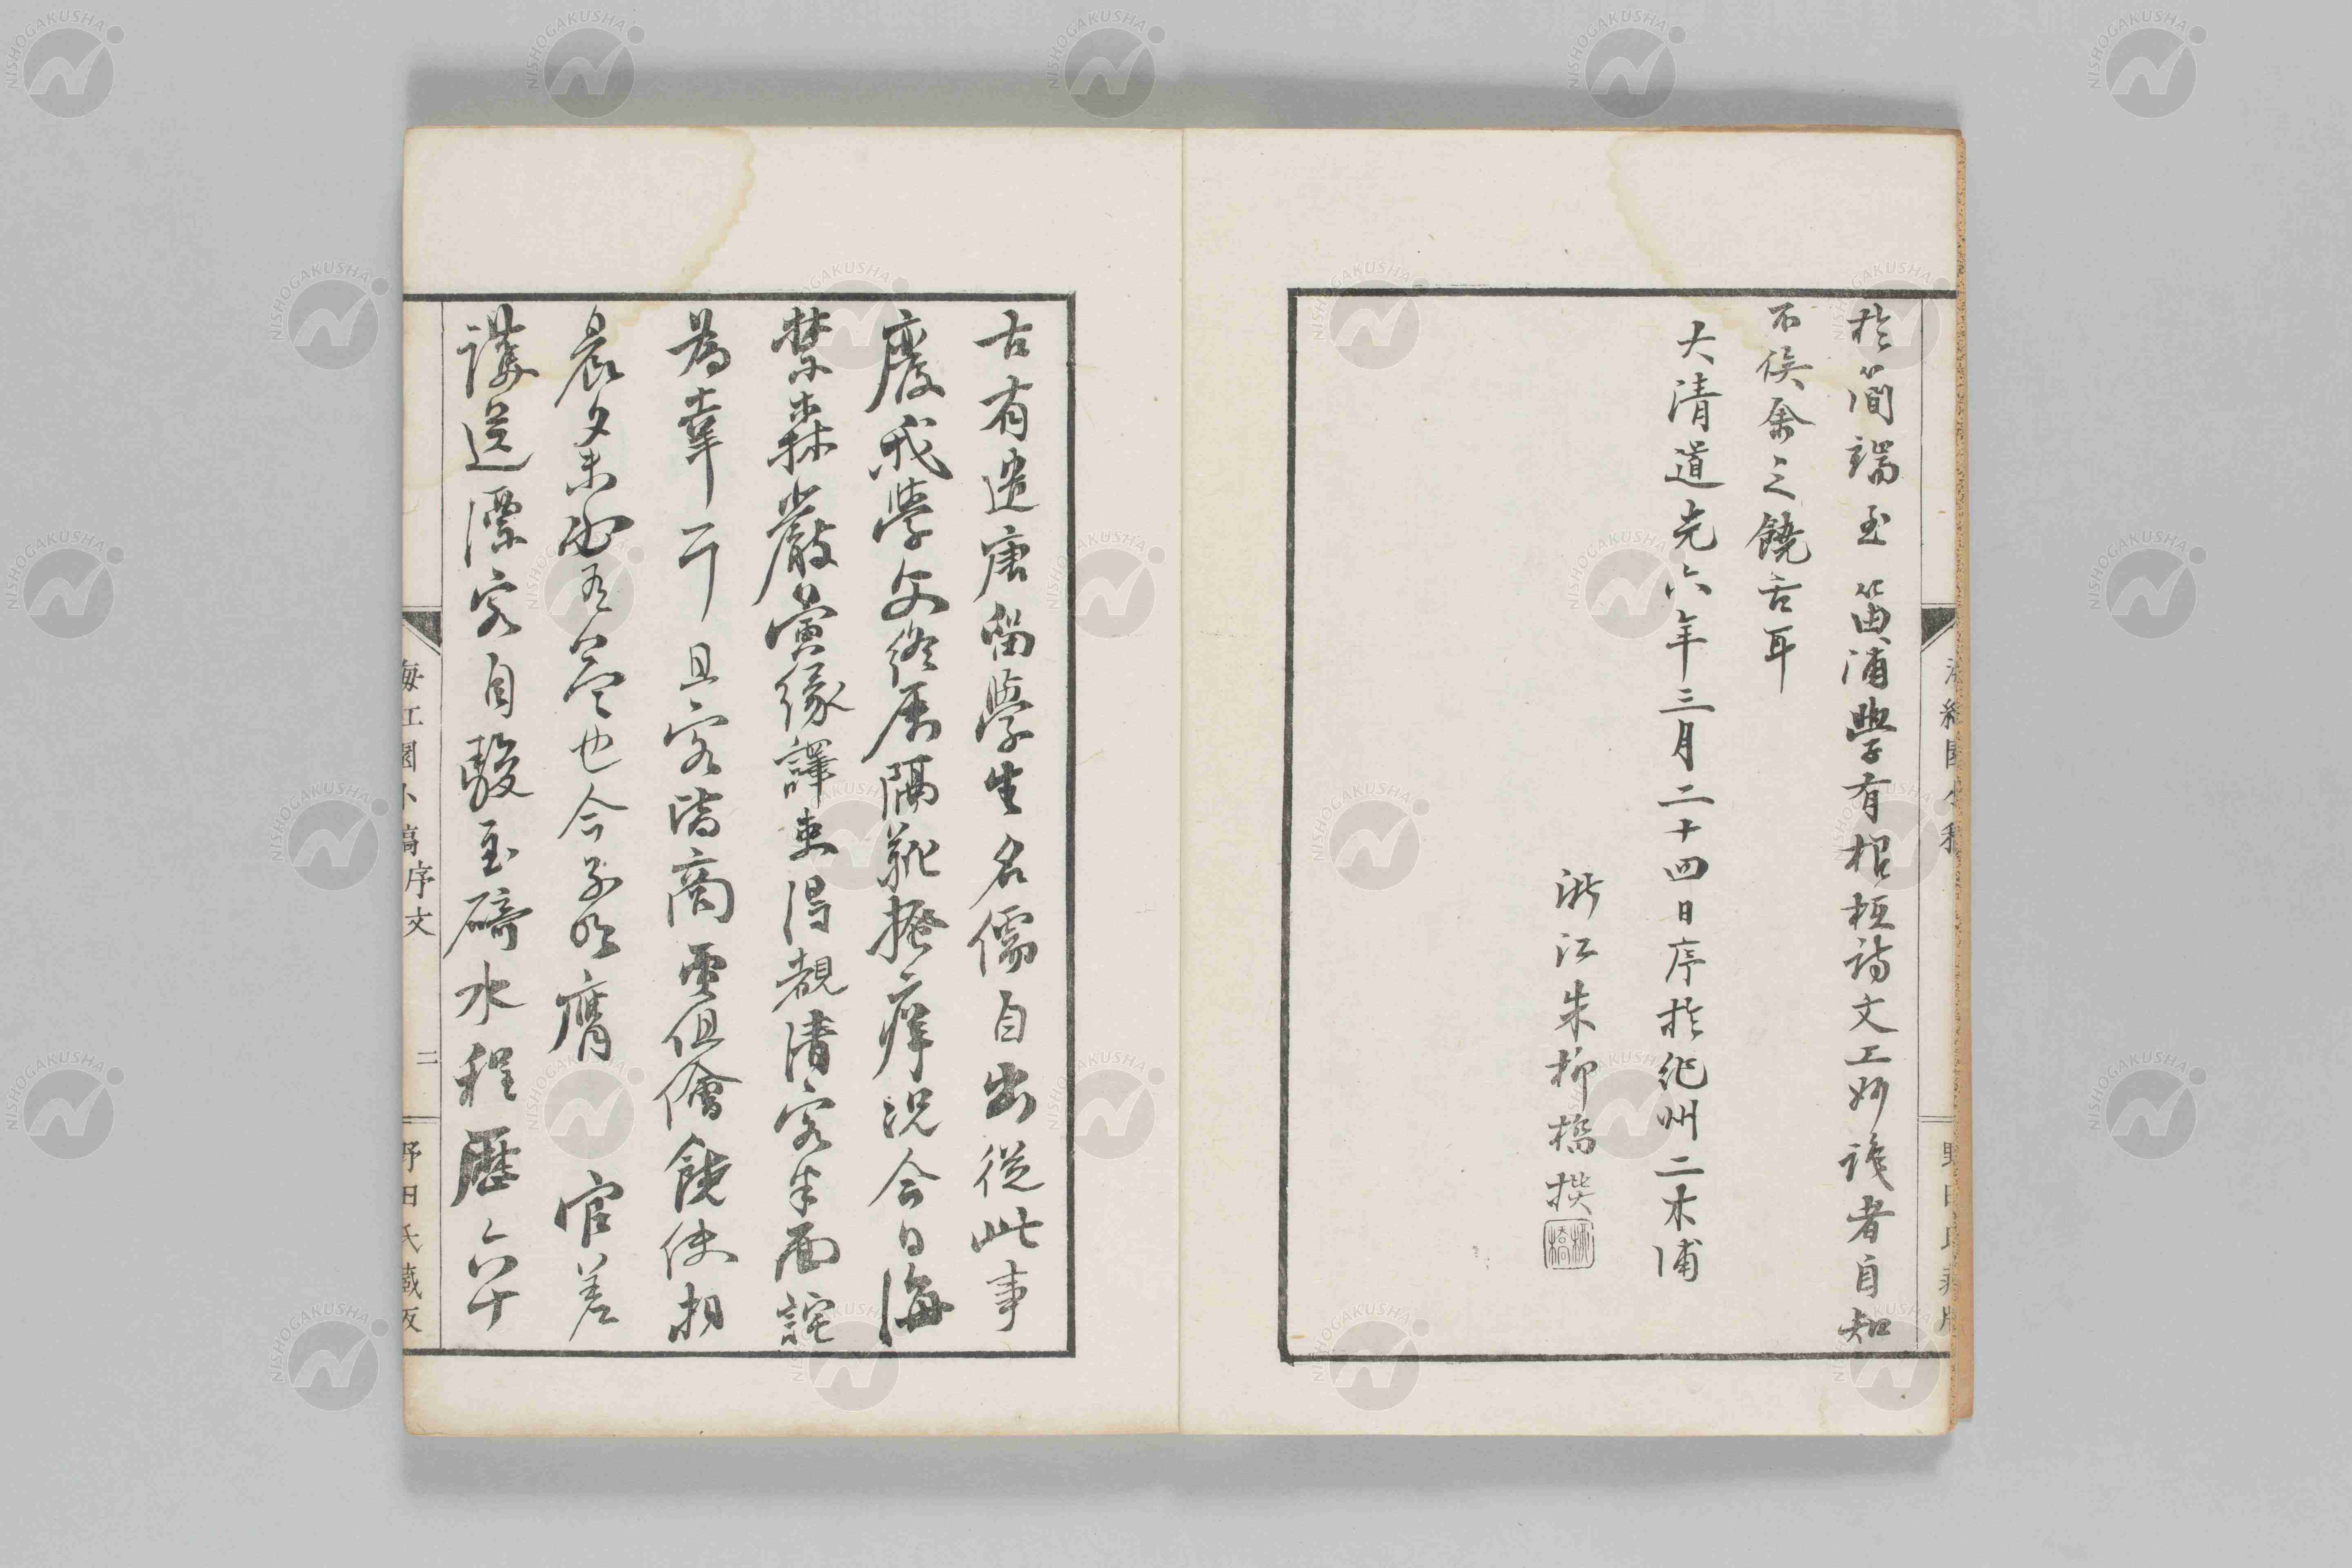 於簡端至笛浦學有根柢詩文工妙識者自知
不俟余之饒舌耳
大清道光六年三月二十四日序於紀州二木浦
浙江朱柳橋撰
柳橋
古有遣唐留學生名儒自出從此事
廢我學文終屬隔靴搔痒況今日海
禁森嚴夤緣譯吏得覩清客半面詫
為幸耳且客皆商賈但儈饒使相
晨夕未必有益也今子明膺 官差
護送漂客自駿至碕水程歷六十
海紅園小稿序文 二 野田氏藏板